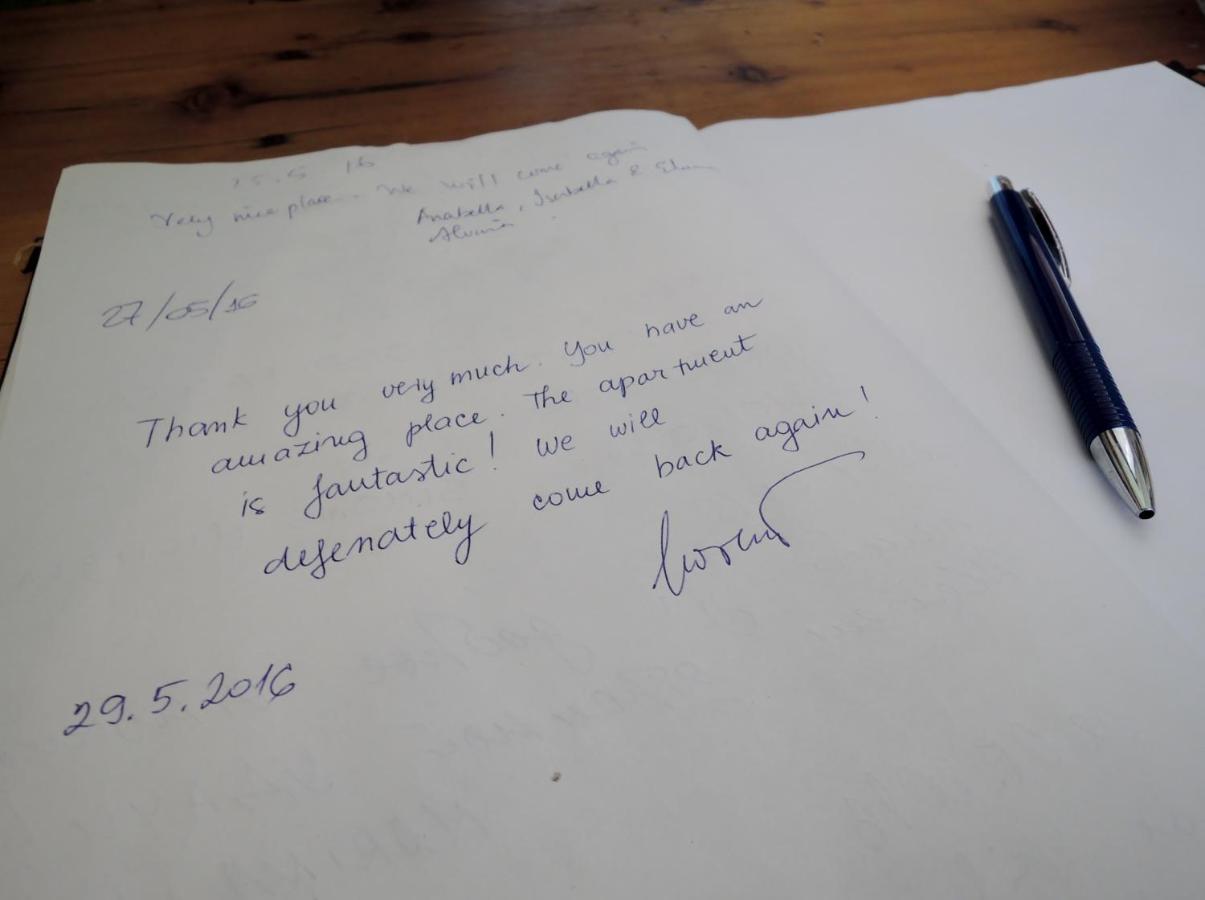 25.5 16
Very nice place. We will come again
Anabella, Isabella &
27/05/16
Thank you very much. You have an
amazing place. The apartment
is fantastic! We will
defenately come back again!
29.5.2016